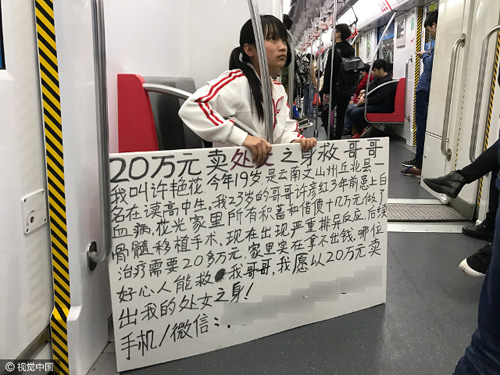 20万元卖处女之身救哥哥
我叫许艳花今年19岁是云南文山州丘北县一
名在读高中生、我23岁的哥哥许彦红3年前患上白
血病,花光家里所有积蓄和借债十几万元做了
骨髓移植手术,现在出现严重排异反应,后续
治疗需要20多万元,家里实在拿不出钱.哪位
好心人能救我哥哥,我愿从20万元卖
出我的处女之身!
手机/微信:
视觉中国